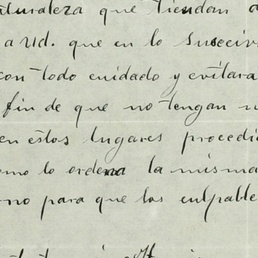 aturaleza que tiendan a
a Ud. que en lo sucesiv
con todo cuidado y evitara
fin de que no tengan
en estos lugares procedi
omo lo ordena la misma
no para que los culpable